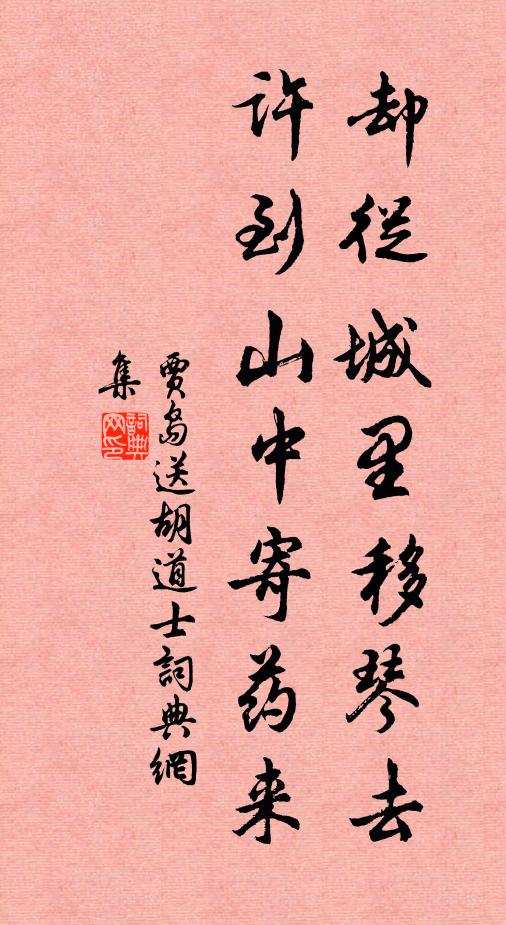 却從城里移琴去
許到山中寄药来
賈島送胡道士詞典網
集
詞典
网印